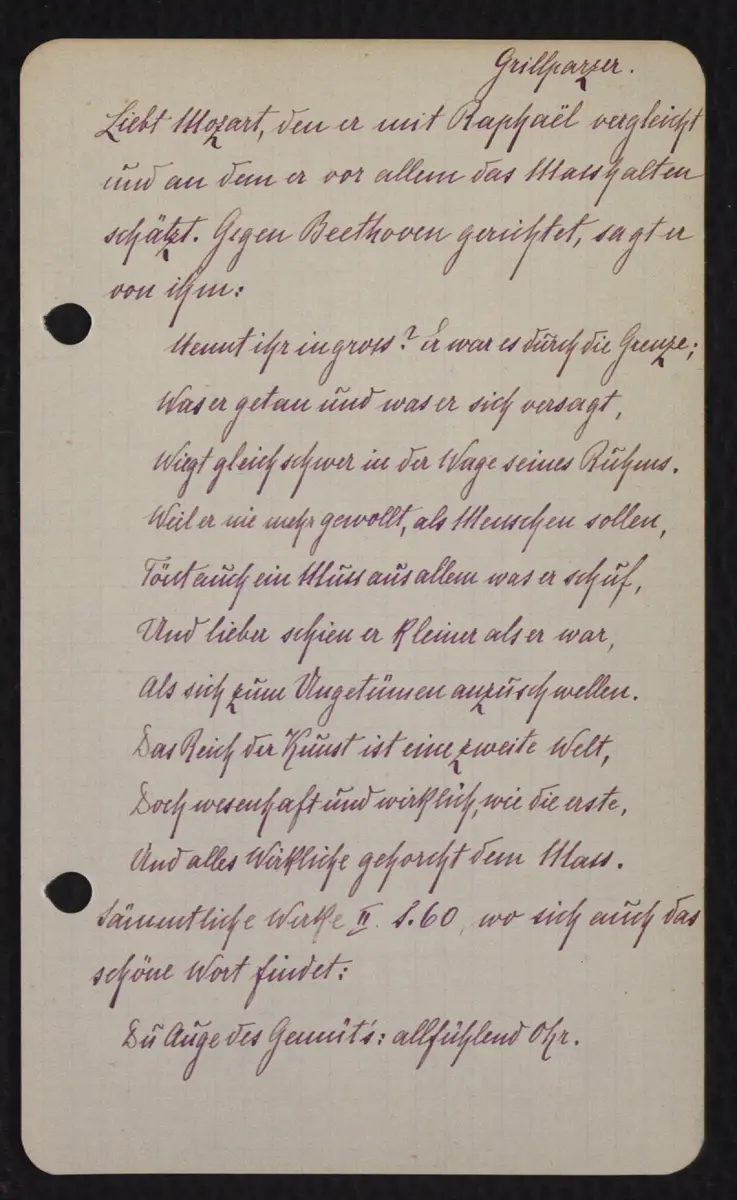 Grillparzer.
Liebt Mozart, den er mit Raphaël vergleicht
und an dem er vor allem das Masshalten
schätzt. Gegen Beethoven gerichtet, sagt er
von ihm:
Nennt ihr in gross? Er war es durch die Grenze;
Was er getan und was er sich versagt,
Wiegt gleich schwer in der Wage seines Ruhms.
Weil er nie mehr gewollt, als Menschen sollen,
Tönt auch ein Muss aus allem was er schuf,
Und lieber schien er kleiner als er war,
Als sich zum Ungetümen anzuschwellen.
Das Reich der Kunst ist eine zweite Welt,
Doch wesenhaft und wirklich, wie die erste,
Und alles Wirkliche gehorcht dem Mass.
Sämmtliche Werke II. S. 60, wo sich auch das
schöne Wort findet:
Du Auge des Gemüt's: allfühlend Ohr.